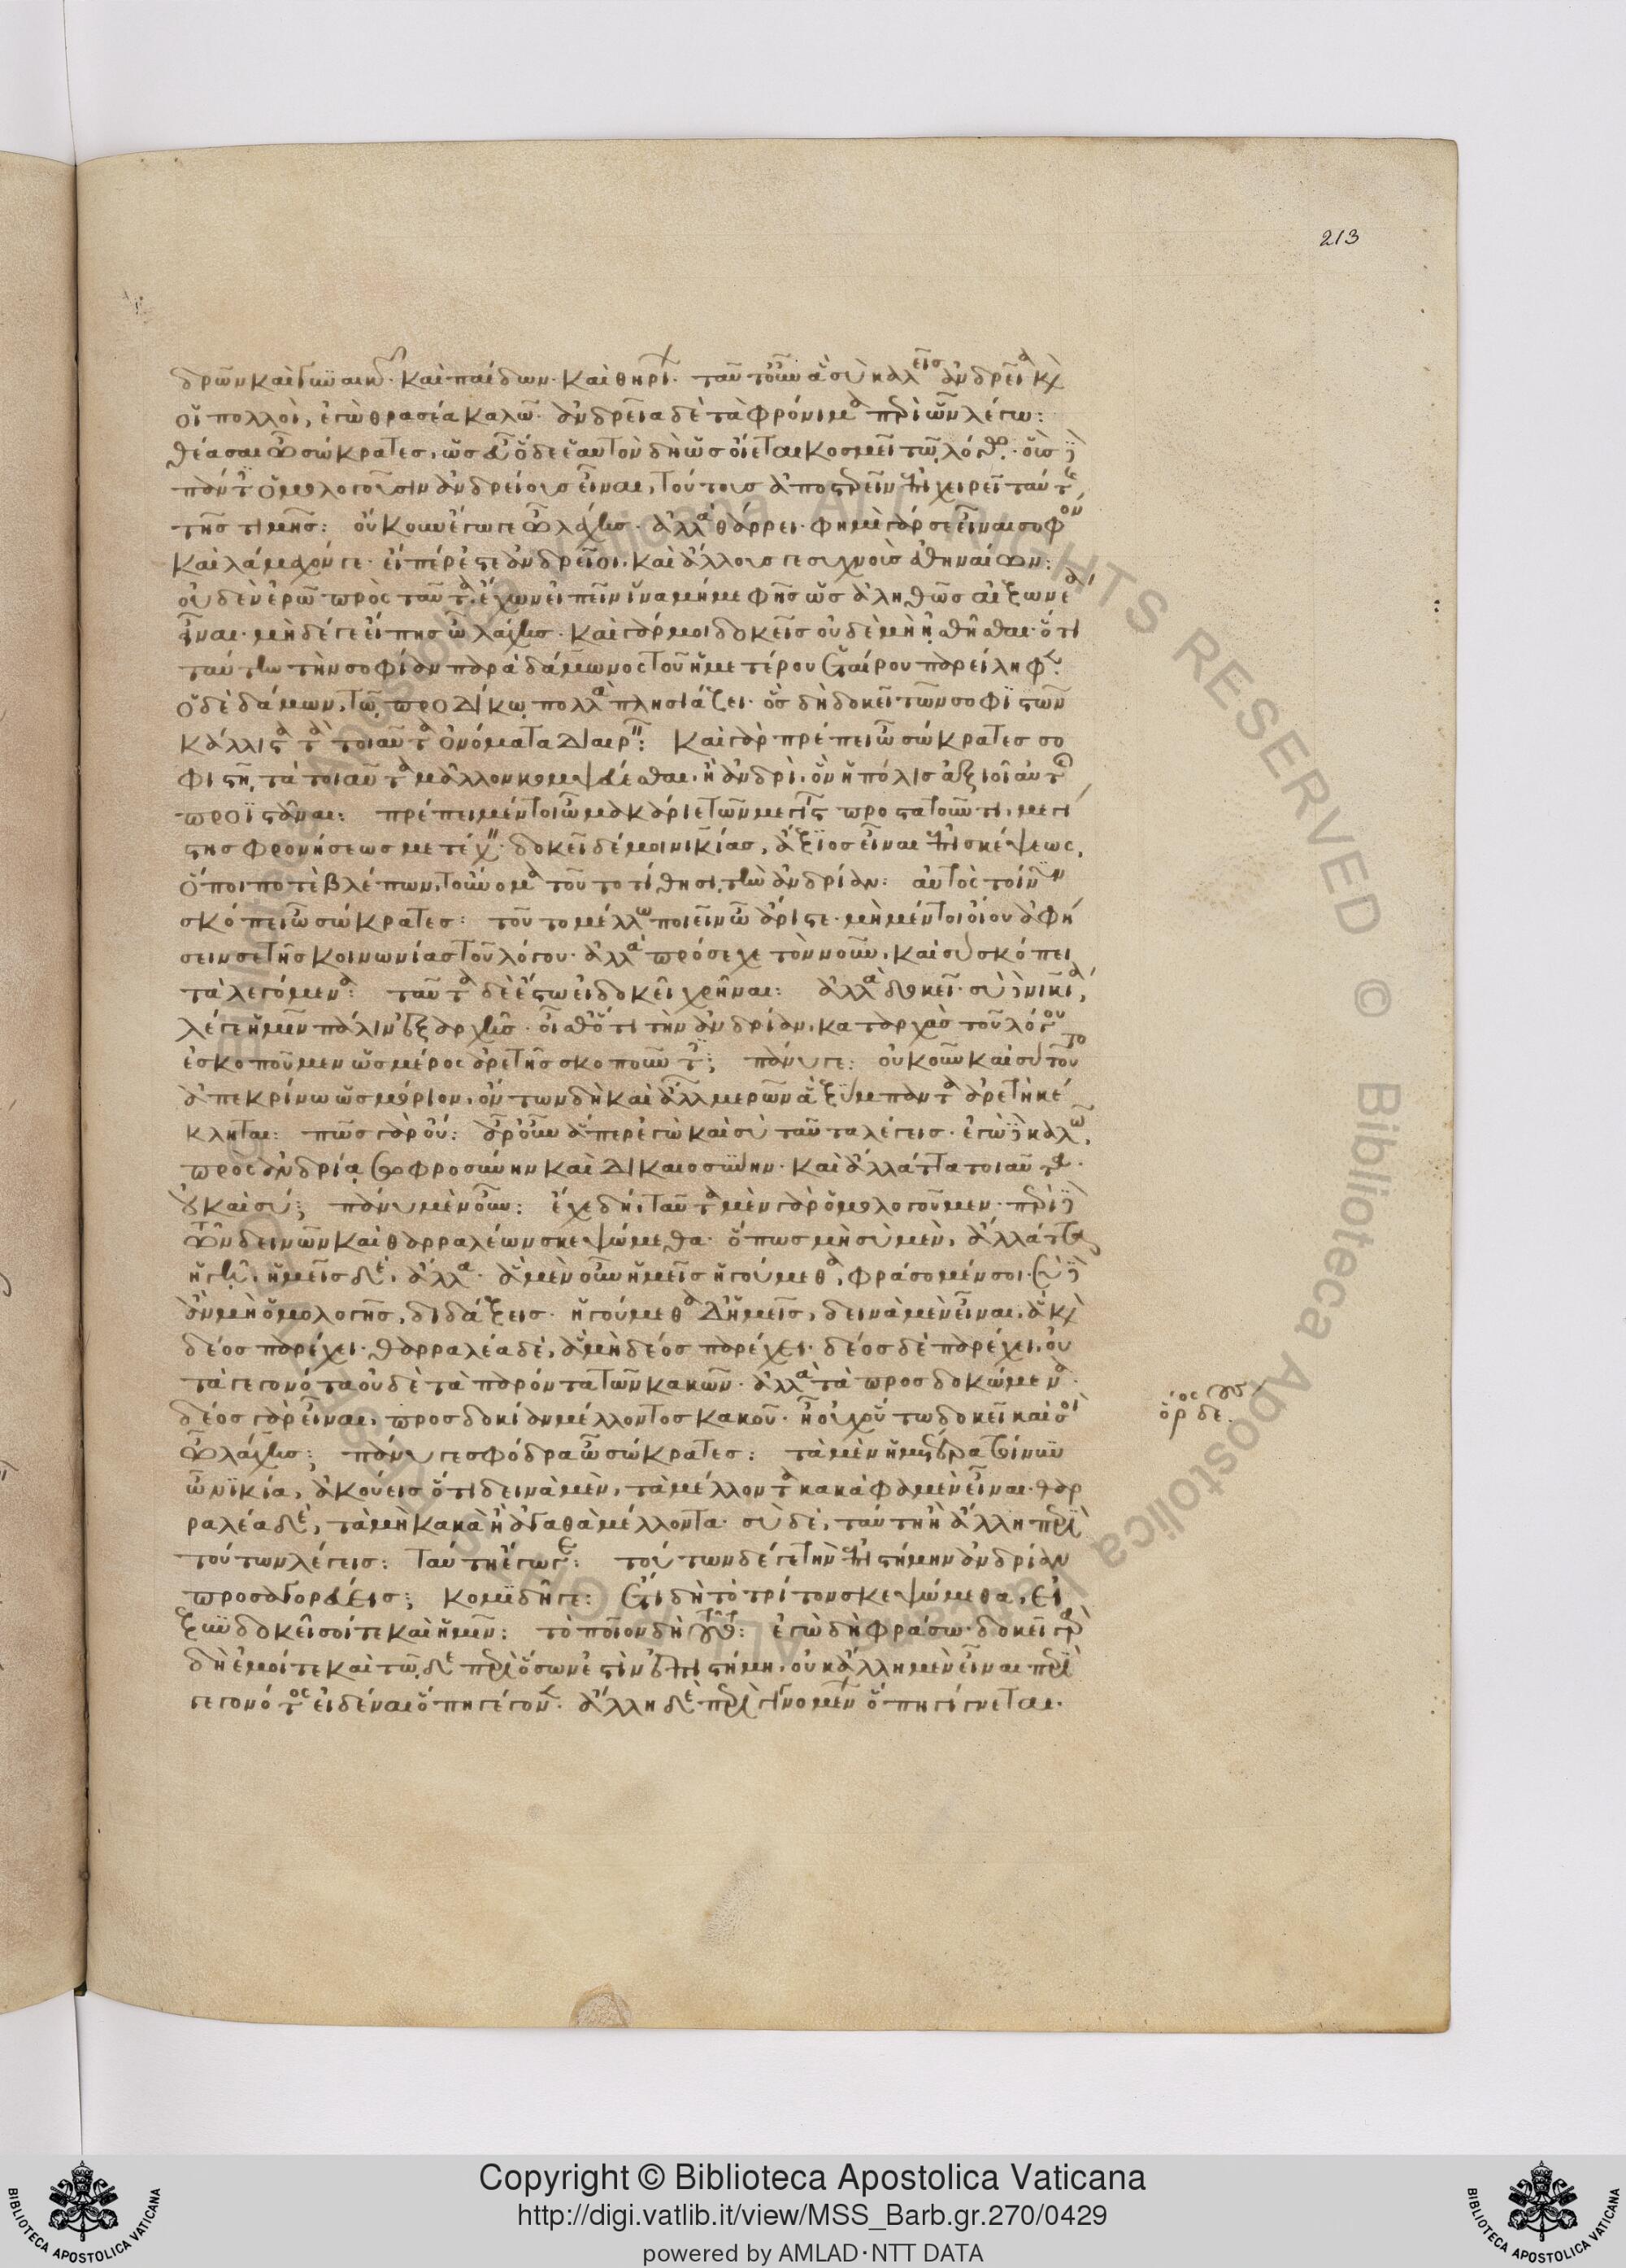 213
δρῶν καὶ γυναικῶν· καὶ παίδων· καὶ θηρίων· ταῦτ' οὖν ἃ σὺ καλεῖς ἀνδρεῖα καὶ
οἱ πολλοὶ, ἐγὼ θρασέα καλῶ· ἀνδρεῖα δὲ τὰ φρόνιμα περὶ ὧν λέγω:
θέασαι ὦ σώκρατες, ὡς εὖ ὅδε ἑαυτὸν δὴ ὡς οἴεται κοσμεῖ τῷ λόγῳ· οὓς δὲ
πάντες ὁμολογοῦσιν ἀνδρείους εἶναι, τούτους ἀποστερεῖν ἐπιχειρεῖ ταύτης
τῆς τιμῆς: οὔκουν ἔγωγε ὦ λάχης· ἀλλὰ θάρρει· φημὶ γάρ σε εἶναι σοφὸν
καὶ λάμαχόν γε· εἴπέρ ἐστε ἀνδρεῖοι· καὶ ἄλλους γε συχνοὺς ἀθηναίων:
οὐδὲν ἐρῶ πρὸς ταῦτα ἔχων εἰπεῖν ἵνα μή με φῇς ὡς ἀληθῶς αἰξωνέα
εἶναι· μηδέ γε εἴπῃς ὦ λάχης· καὶ γάρ μοι δοκεῖς οὐδὲ μὴ ᾐσθῆσθαι ὅτι
ταύτην τὴν σοφίαν παρὰ δάμωνος τοῦ ἡμετέρου ἑταίρου παρείληφε·
ὁ δὲ δάμων, τῷ προδίκῳ πολλὰ πλησιάζει· ὃς δὴ δοκεῖ τῶν σοφιστῶν
κάλλιστα τὰ τοιαῦτα ὀνόματα διαιρεῖν: καὶ γὰρ πρέπει ὦ σώκρατες σο
φιστῇ, τὰ τοιαῦτα μᾶλλον κομψεύεσθαι, ἢ ἀνδρὶ, ὃν ἡ πόλις ἀξιοῖ αὐτῆς
προϊστάναι: πρέπει μέντοι ὦ μακάριε τῶν μεγίστων προστατοῦντι, μεγί
στης φρονήσεως μετέχειν· δοκεῖ δέ μοι νικίας, ἄξιος εἶναι ἐπισκέψεως,
ὅποι ποτὲ βλέπων, τοὔνομα τοῦτο τίθησι, τὴν ἀνδρίαν: αὐτὸς τοίνυν
σκόπει ὦ σώκρατες: τοῦτο μέλλω ποιεῖν ὦ ἄριστε· μὴ μέντοι οἴου ἀφή
σειν σε τῆς κοινωνίας τοῦ λόγου· ἀλλὰ πρόσεχε τὸν νοῦν, καὶ συσκόπει
τὰ λεγόμενα: ταῦτα δὲ ἔστω εἰ δοκεῖ χρῆναι: ἀλλὰ δοκεῖ· σὺ δὲ νικία,
λέγε ἡμῖν πάλιν ἐξ ἀρχῆς· οἶσθ' ὅτι τὴν ἀνδρίαν, κατ' ἀρχὰς τοῦ λόγου
ἐσκοποῦμεν ὡς μέρος ἀρετῆς σκοποῦντες; πάνυ γε: οὐκοῦν καὶ σὺ τοῦτο
ἀπεκρίνω ὡς μόριον, ὄντων δὴ καὶ ἄλλων μερῶν ἃ ξύμπαντα ἀρετὴ κέ
κληται: πῶς γὰρ οὔ: ἆρ' οὖν ἅπερ ἐγὼ καὶ σὺ ταῦτα λέγεις· ἐγὼ δὲ καλῶ,
πρὸς ἀνδρίᾳ σωφροσύνην καὶ δικαιοσύνην· καὶ ἄλλ' ἄττα τοιαῦτα·
οὐ καὶ σύ; πάνυ μὲν οὖν: ἔχε δὴ, ταῦτα μὲν γὰρ ὁμολογοῦμεν· περὶ δὲ
τῶν δεινῶν καὶ θαρραλέων σκεψώμεθα· ὅπως μὴ σὺ μὲν, ἄλλ' ἄττα
ἡγῇ, ἡμεῖς δὲ, ἄλλα· ἃ μὲν οὖν ἡμεῖς ἡγούμεθα, φράσομέν σοι· σὺ δὲ
ἂν μὴ ὁμολογῇς, διδάξεις· ἡγούμεθα δ' ἡμεῖς, δεινὰ μὲν εἶναι, ἃ καὶ
δέος παρέχει· θαρραλέα δὲ, ἃ μὴ δέος παρέχει· δέος δὲ παρέχει, οὐ
τὰ γεγονότα οὐδὲ τὰ παρόντα τῶν κακῶν· ἀλλὰ τὰ προσδοκώμενα·
δέος γὰρ εἶναι, προσδοκίαν μέλλοντος κακοῦ· ἢ οὐχ οὕτω δοκεῖ καὶ σοὶ
ὅρος δέους
ὦ λάχης; πάνυ γε σφόδρα ὦ σώκρατες: τὰ μὲν ἡμέτερα τοίνυν
ὦ νικία, ἀκούεις ὅτι δεινὰ μὲν, τὰ μέλλοντα κακὰ φαμὲν εἶναι· θαρ
ραλέα δὲ, τὰ μὴ κακὰ ἢ ἀγαθὰ μέλλοντα· σὺ δὲ, ταύτῃ ἢ ἄλλῃ περὶ
τούτων λέγεις: ταύτῃ ἔγωγε: τούτων δέ γε τὴν ἐπιστήμην ἀνδρίαν
προσαγορεύεις; κομιδῇ γε: ἔτι δὴ τὸ τρίτον σκεψώμεθα, εἰ
ξυνδοκεῖ σοί τε καὶ ἡμῖν: τὸ ποῖον δὴ τοῦτο: ἐγὼ δὴ φράσω· δοκεῖ γὰρ
δὴ ἐμοί τε καὶ τῷδε περὶ ὅσων ἐστὶν ἐπιστήμη, οὐκ ἄλλη μὲν εἶναι περὶ
γεγονότος εἰδέναι ὅπῃ γέγονεν· ἄλλη δὲ περὶ γιγνομένων ὅπῃ γίγνεται·
Copyright © Biblioteca Apostolica Vaticana
http://digi.vatlib.it/view/MSS_Barb.gr.270/0429
powered by AMLAD·NTT DATA